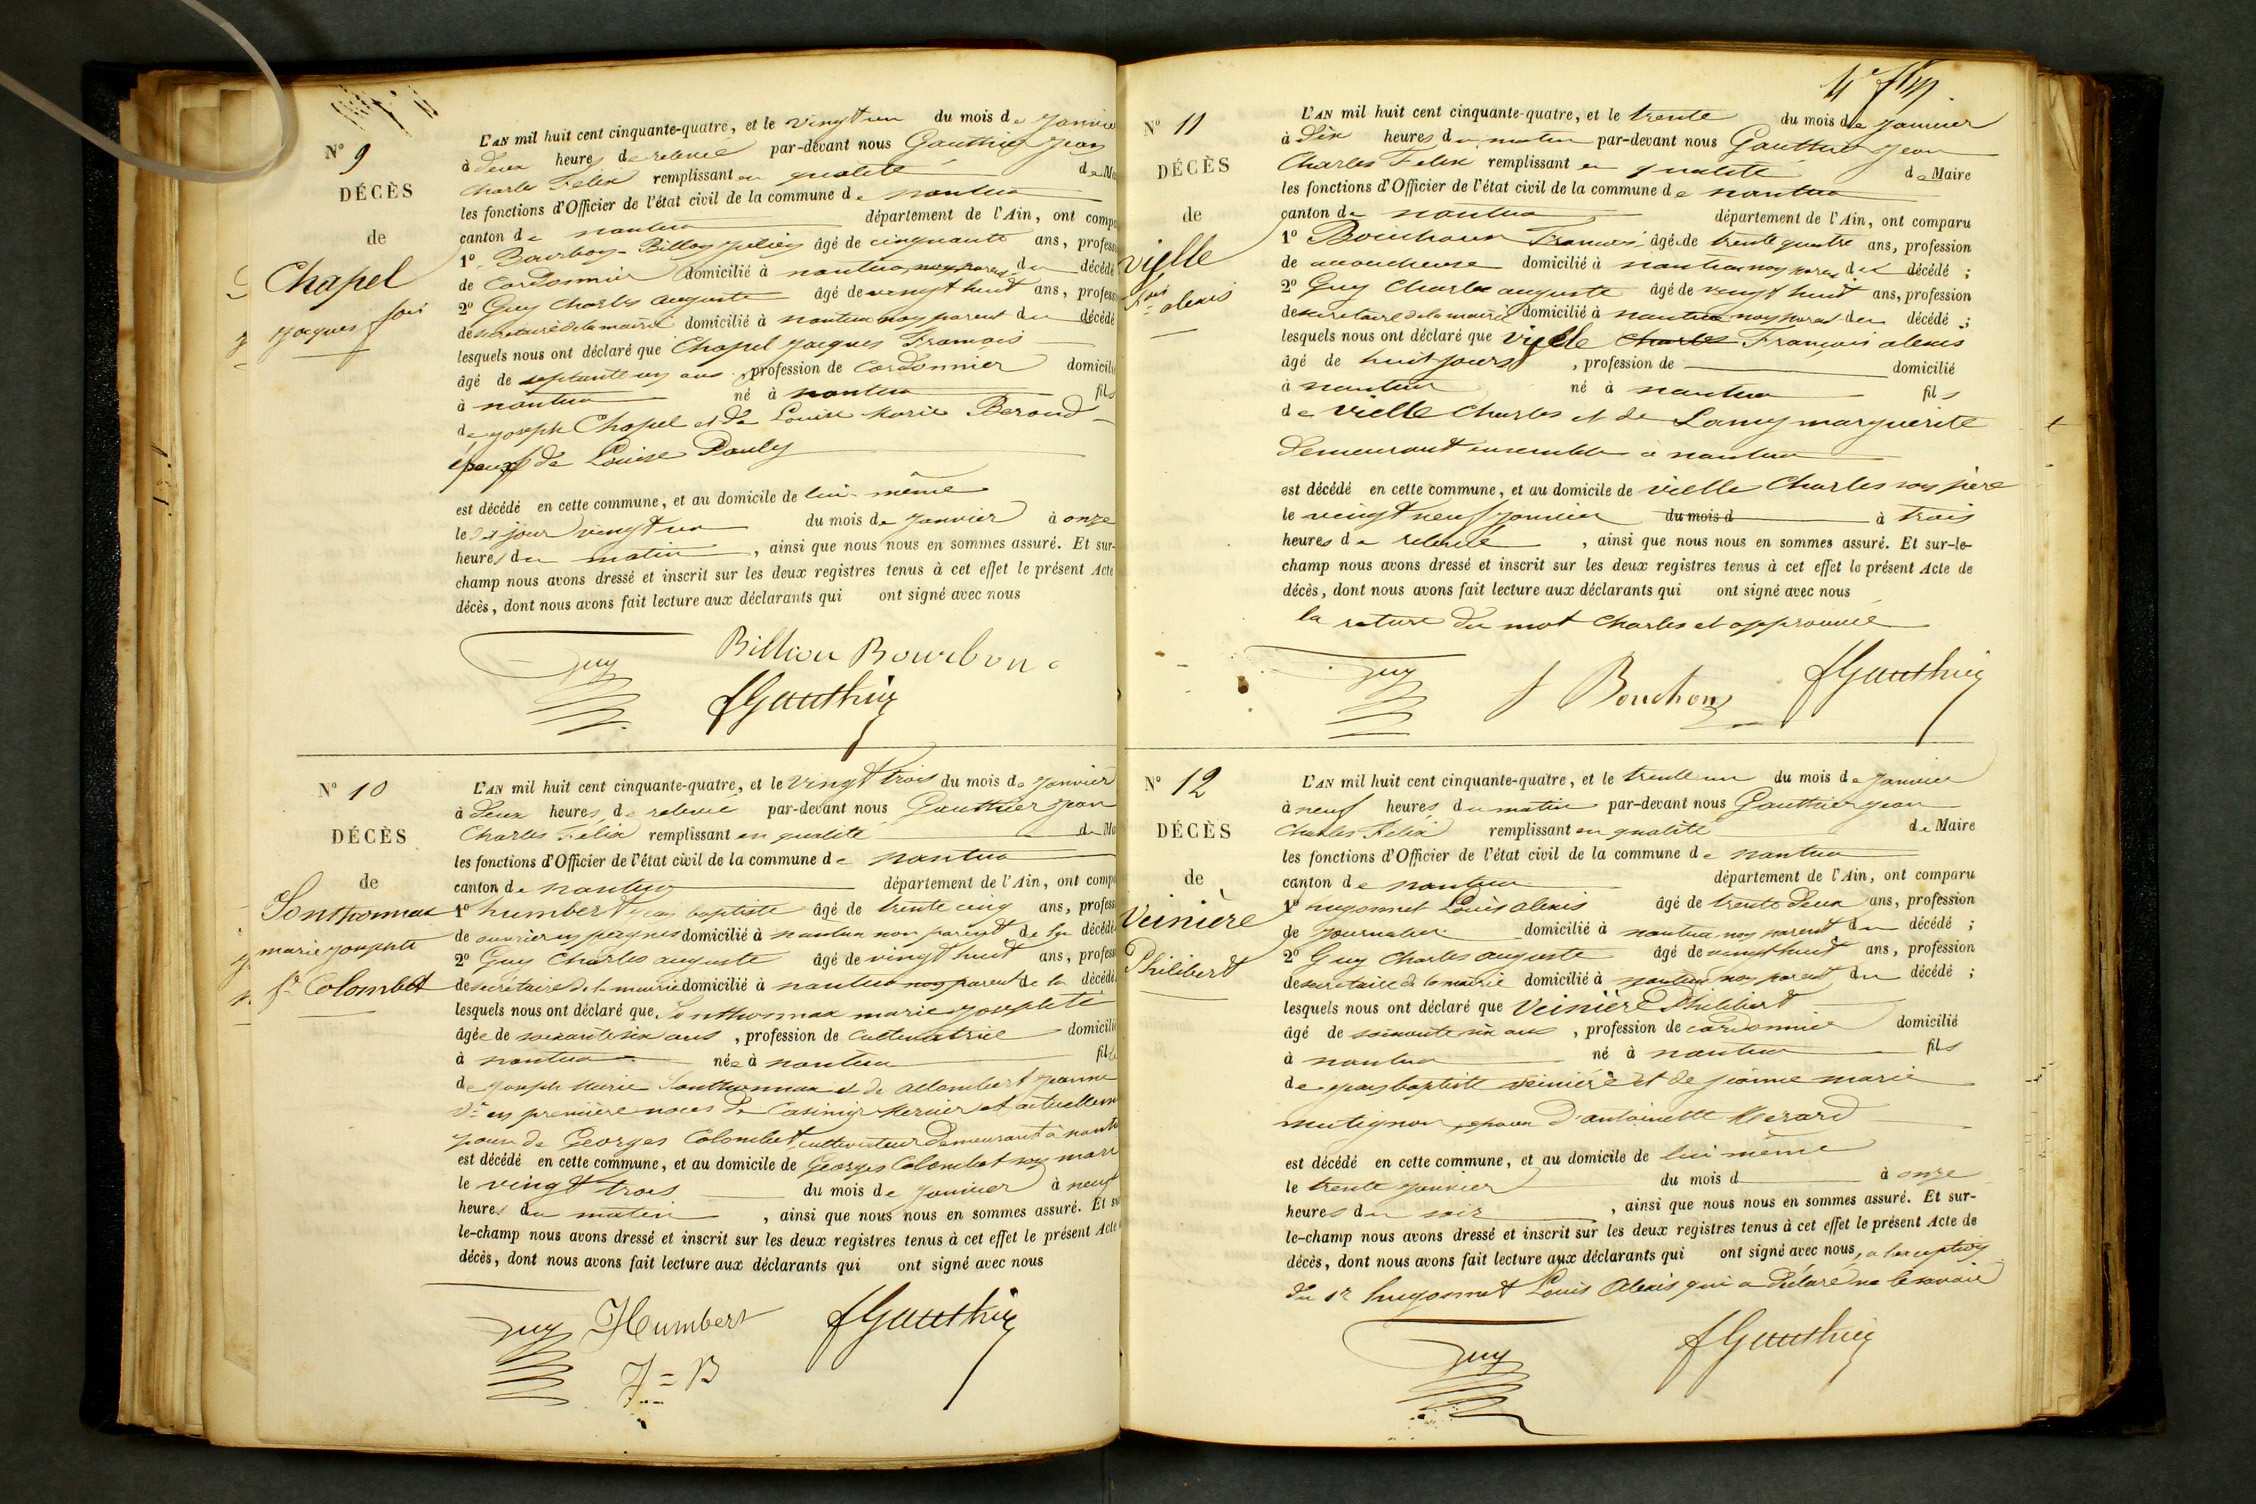 N° 9
DÉCÈS
de
Chapel
jacques fois
L'AN mil huit cent cinquante-quatre, et le vingt un du mois de Janvier
à deux heures de relevée par-devant nous Gauthier Jean
Charle Felix remplissant en qualité de Ma
les fonctions d'Officier de l'état civil de la commune de nantua
canton de nantua département de l'Ain, ont compa
1° Bourbon-Billon julien âgé de cinquante ans, profess
de Cordonnier domicilié à nantua, non parent du décédé
2° Guy Charles auguste âgé de vingt huit ans, profess
de secretaire de la mairie domicilié à nantua non parent du décédé
lesquels nous ont déclaré que Chapel jacques Francois
âgé de septante un ans, profession de Cordonnier domicilié
à nantua né à nantua fils
de joseph Chapel et de Louise Marie Beroud
époux de Louise Pauly
est décédé en cette commune, et au domicile de lui-même
le dt jour vingt un du mois de Janvier à onze
heures du matin, ainsi que nous nous en sommes assuré. Et sur-
champ nous avons dressé et inscrit sur les deux registres tenus à cet effet le présent Acte
décès, dont nous avons fait lecture aux déclarants qui ont signé avec nous
Guy Billion Bourbon
fGauthier
N° 10
DÉCÈS
de
Sonthonnax
marie josephte
fe Colombet
L'AN mil huit cent cinquante-quatre, et le vingt trois du mois de Janvier
à deux heures de relevée par-devant nous Gauthier Jean
Charles Felix remplissant en qualité de Ma
les fonctions d'Officier de l'état civil de la commune de nantua
canton de nantua département de l'Ain, ont compa
1° humbert jean baptiste âgé de trente cinq ans, profess
de ouvrier en peignes domicilié à nantua non parent de la décédé
2° Guy Charles auguste âgé de vingt huit ans, profess
de secrétaire de la mairie domicilié à nantua non parent de la décédé
lesquels nous ont déclaré que Sonthonnax marie josephte
âgée de soixante six ans, profession de cultivatrice domicilié
à nantua née à nantua fille
de joseph Marie Sonthonnax et de Allombert jeanne
Ve en première noces de Casimir Mercier et actuellem
épouse de Georges Colombet cultivateur demeurant à nantu
est décédé en cette commune, et au domicile de Georges Colombet son mari
le vingt trois du mois de janvier à neuf
heures du matin, ainsi que nous nous en sommes assuré. Et su
le-champ nous avons dressé et inscrit sur les deux registres tenus à cet effet le présent Acte
décès, dont nous avons fait lecture aux déclarants qui ont signé avec nous
Guy Humbert fGauthier
J=B
N° 11
DÉCÈS
de
vielle
fois alexis
L'AN mil huit cent cinquante-quatre, et le trente du mois de janvier
à dix heures du matin par-devant nous Gauthier Jean
Charles Felix remplissant en qualité de Maire
les fonctions d'Officier de l'état civil de la commune de nantua
canton de nantua département de l'Ain, ont comparu
1° Francois âgé de trente quatre ans, profession
de accoucheuse domicilié à nantua non parent du décédé ;
2° Guy Charles auguste âgé de vingt huit ans, profession
de secretaire de la mairie domicilié à nantua non parent du décédé ;
lesquels nous ont déclaré que vielle Charles François alexis
âgé de huit jours, profession de domicilié
à nantua né à nantua fils
de vielle Charles et de Lamy marguerite
demeurant ensemble à nantua
est décédé en cette commune, et au domicile de vielle Charles son père
le vingt neuf janvier du mois d à trois
heures de relevée, ainsi que nous nous en sommes assuré. Et sur-le-
champ nous avons dressé et inscrit sur les deux registres tenus à cet effet le présent Acte de
décès, dont nous avons fait lecture aux déclarants qui ont signé avec nous
la rature du mot Charles et approuvée
Guy f Bouchon fGauthier
N° 12
DÉCÈS
de
Veinière
Philibert
L'AN mil huit cent cinquante-quatre, et le trente un du mois de Janvier
à neuf heures du matin par-devant nous Gauthier jean
Charles Felix remplissant en qualité de Maire
les fonctions d'Officier de l'état civil de la commune de nantua
canton de nantua département de l'Ain, ont comparu
1° hugonnet Louis alexis âgé de trente deux ans, profession
de journalier domicilié à nantua non parent du décédé ;
2° Guy Charles auguste âgé de vingt huit ans, profession
de secretaire de la mairie domicilié à nantua non parent du décédé ;
lesquels nous ont déclaré que Veinière Philibert
âgé de soixante six ans, profession de cordonnier domicilié
à nantua né à nantua fils
de jean baptiste veinière et de jeanne marie
mutignon epoux d'antoinette Merard
est décédé en cette commune, et au domicile de lui même
le trente janvier du mois d à onze
heures du soir, ainsi que nous nous en sommes assuré. Et sur-
le-champ nous avons dressé et inscrit sur les deux registres tenus à cet effet le présent Acte de
décès, dont nous avons fait lecture aux déclarants qui ont signé avec nous, a l'exception
du sr hugonnet Louis Alexis qui a déclaré ne le savoir
Guy fGauthier